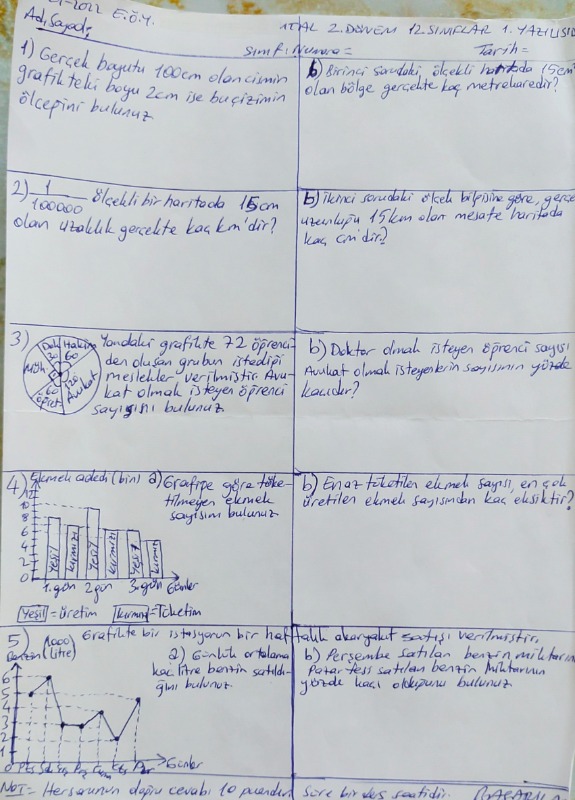 2021-2022 E.Ö.Y.
1TAL 2.DÖNEM 12.SINIFLAR 1.YAZILISI
Adı, Soyadı:
Sınıf: Numara=
Tarih=
1) Gerçek boyutu 100cm olan cismin
grafikteki boyu 2cm ise bu çizimin
ölçeğini bulunuz
b) Birinci sorudaki ölçekli haritada 15cm²
olan bölge gerçekte kaç metrekaredir?
2) 1/100000 ölçekli bir haritada 15cm
olan uzaklık gerçekte kaç km'dir?
b) İkinci sorudaki ölçek bilgisine göre, gerçek
uzunluğu 15km olan mesafe haritada
kaç cm'dir?
3) Yandaki grafikte 72 öğrenci
den oluşan grubun istediği
meslekler verilmiştir. Avu-
kat olmak isteyen öğrenci
sayısını bulunuz
Dok 30
Hakim 60
Müh.
120 Avukat
60 Öğret
b) Doktor olmak isteyen öğrenci sayısı
Avukat olmak isteyenlerin sayısının yüzde
kaçıdır?
4) Ekmek adedi (bin)
a) Grafiğe göre tüke-
tilmeyen ekmek
sayısını bulunuz
12
10
8
6
4
2
0
Yeşil kırmızı Yeşil kırmızı Yeşil kırmızı
1.gün 2.gün 3.gün Günler
Yeşil = üretim kırmızı = Tüketim
b) En az tüketilen ekmek sayısı, en çok
üretilen ekmek sayısından kaç eksiktir?
5) Grafikte bir istasyonun bir haftalık akaryakıt satışı verilmiştir.
Benzin (1000 litre)
a) Günlük ortalama
kaç litre benzin satıldı-
ğını bulunuz.
6
5
4
3
2
1
0
Günler
b) Perşembe satılan benzin miktarının
Pazartesi satılan benzin miktarının
yüzde kaçı olduğunu bulunuz
NOT= Her sorunun doğru cevabı 10 puandır. Süre bir ders saatidir.